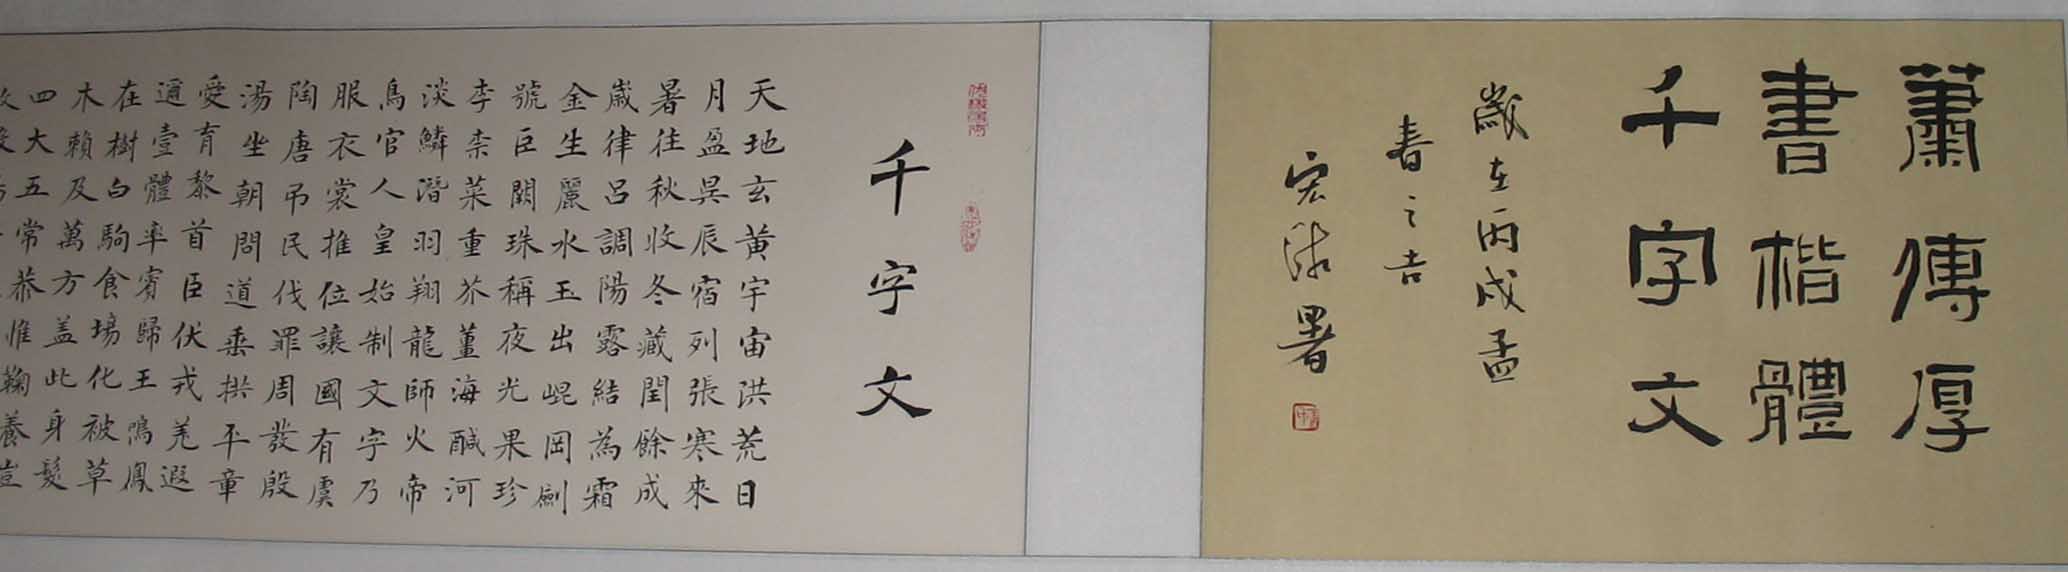 蕭傳厚
書楷體
千字文
歲在丙戌孟
春之吉
宏署
千字文
天地玄黃宇宙洪荒日
月盈昃辰宿列張寒來
暑往秋收冬藏閏餘成
歲律呂調陽露結為霜
金生麗水玉出崐岡劍
號巨闕珠稱夜光果珍
李柰菜重芥薑海鹹河
淡鱗潛羽翔龍師火帝
鳥官人皇始制文字乃
服衣裳推位讓國有虞
陶唐弔民伐罪周發殷
湯坐朝問道垂拱平章
愛育黎首臣伏戎羌遐
邇壹體率賓歸王鳴鳳
在樹白駒食場化被草
木賴及萬方盖此身髮
四大五常恭惟鞠養豈